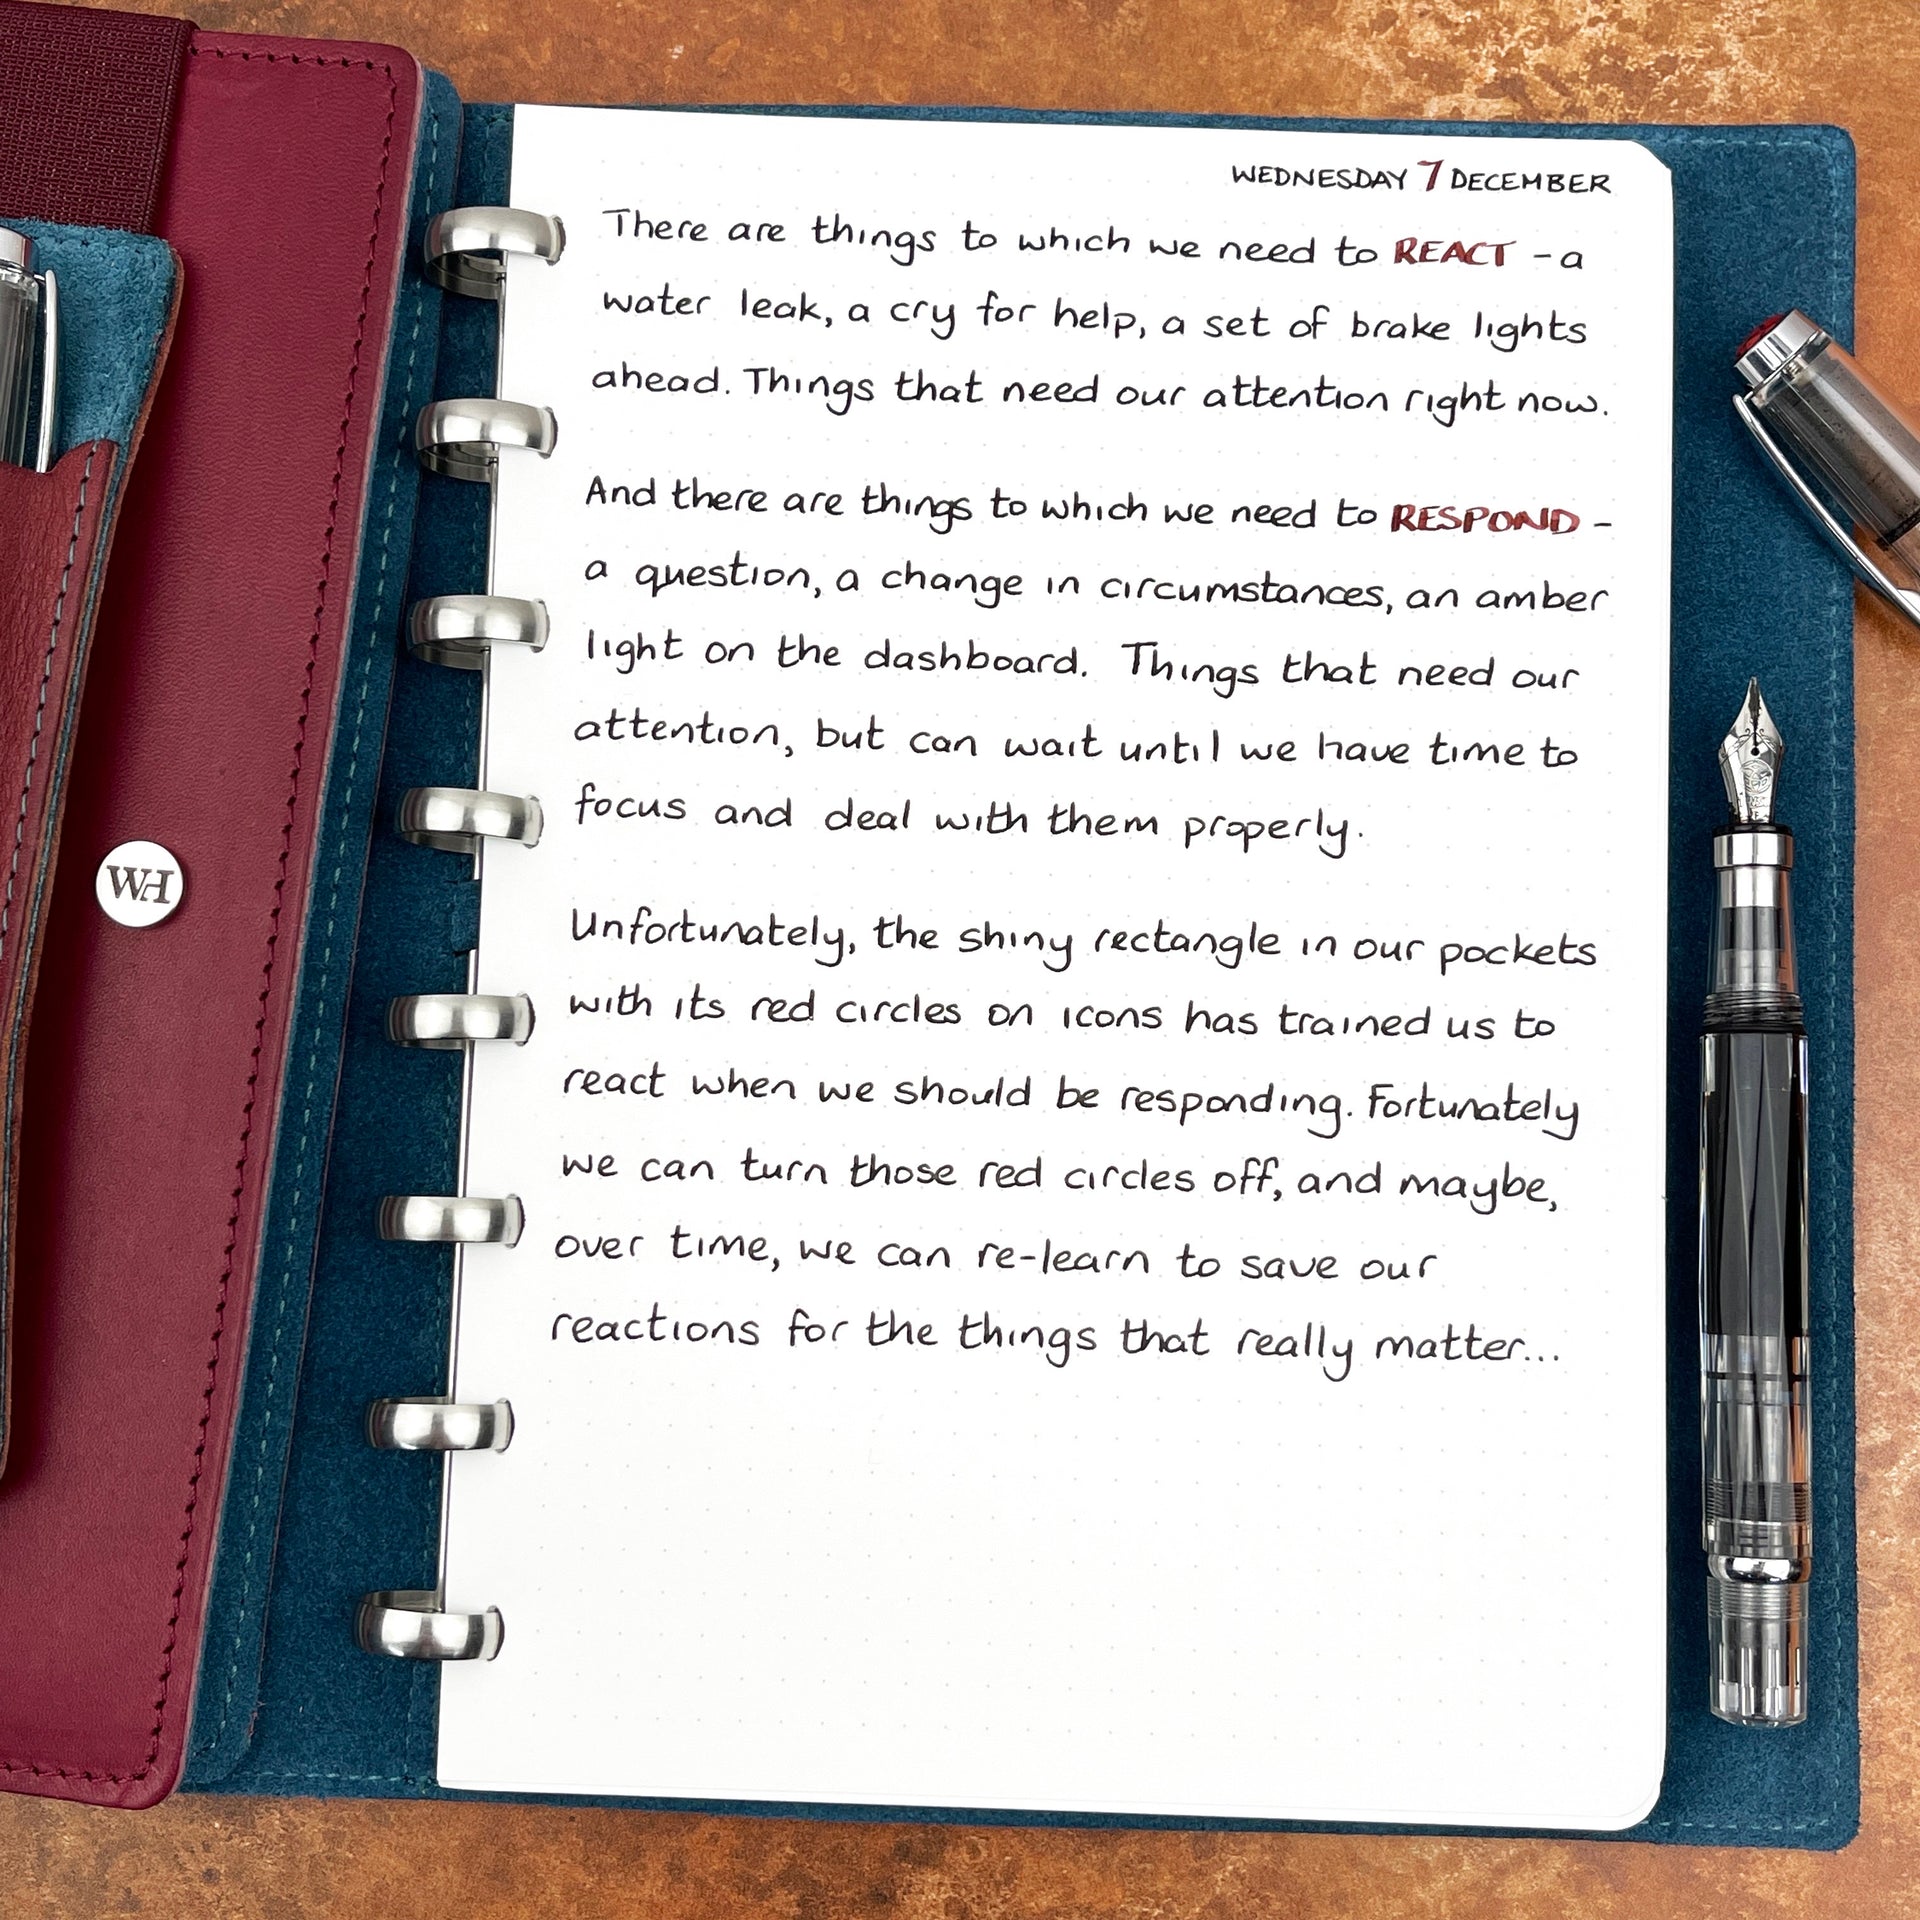 WEDNESDAY 7 DECEMBER
There are things to which we need to REACT - a
water leak, a cry for help, a set of brake lights
ahead. Things that need our attention right now.
And there are things to which we need to RESPOND -
a question, a change in circumstances, an amber
light on the dashboard. Things that need our
attention, but can wait until we have time to
focus and deal with them properly.
Unfortunately, the shiny rectangle in our pockets
with its red circles on icons has trained us to
react when we should be responding. Fortunately
we can turn those red circles off, and maybe,
over time, we can re-learn to save our
reactions for the things that really matter...
WH